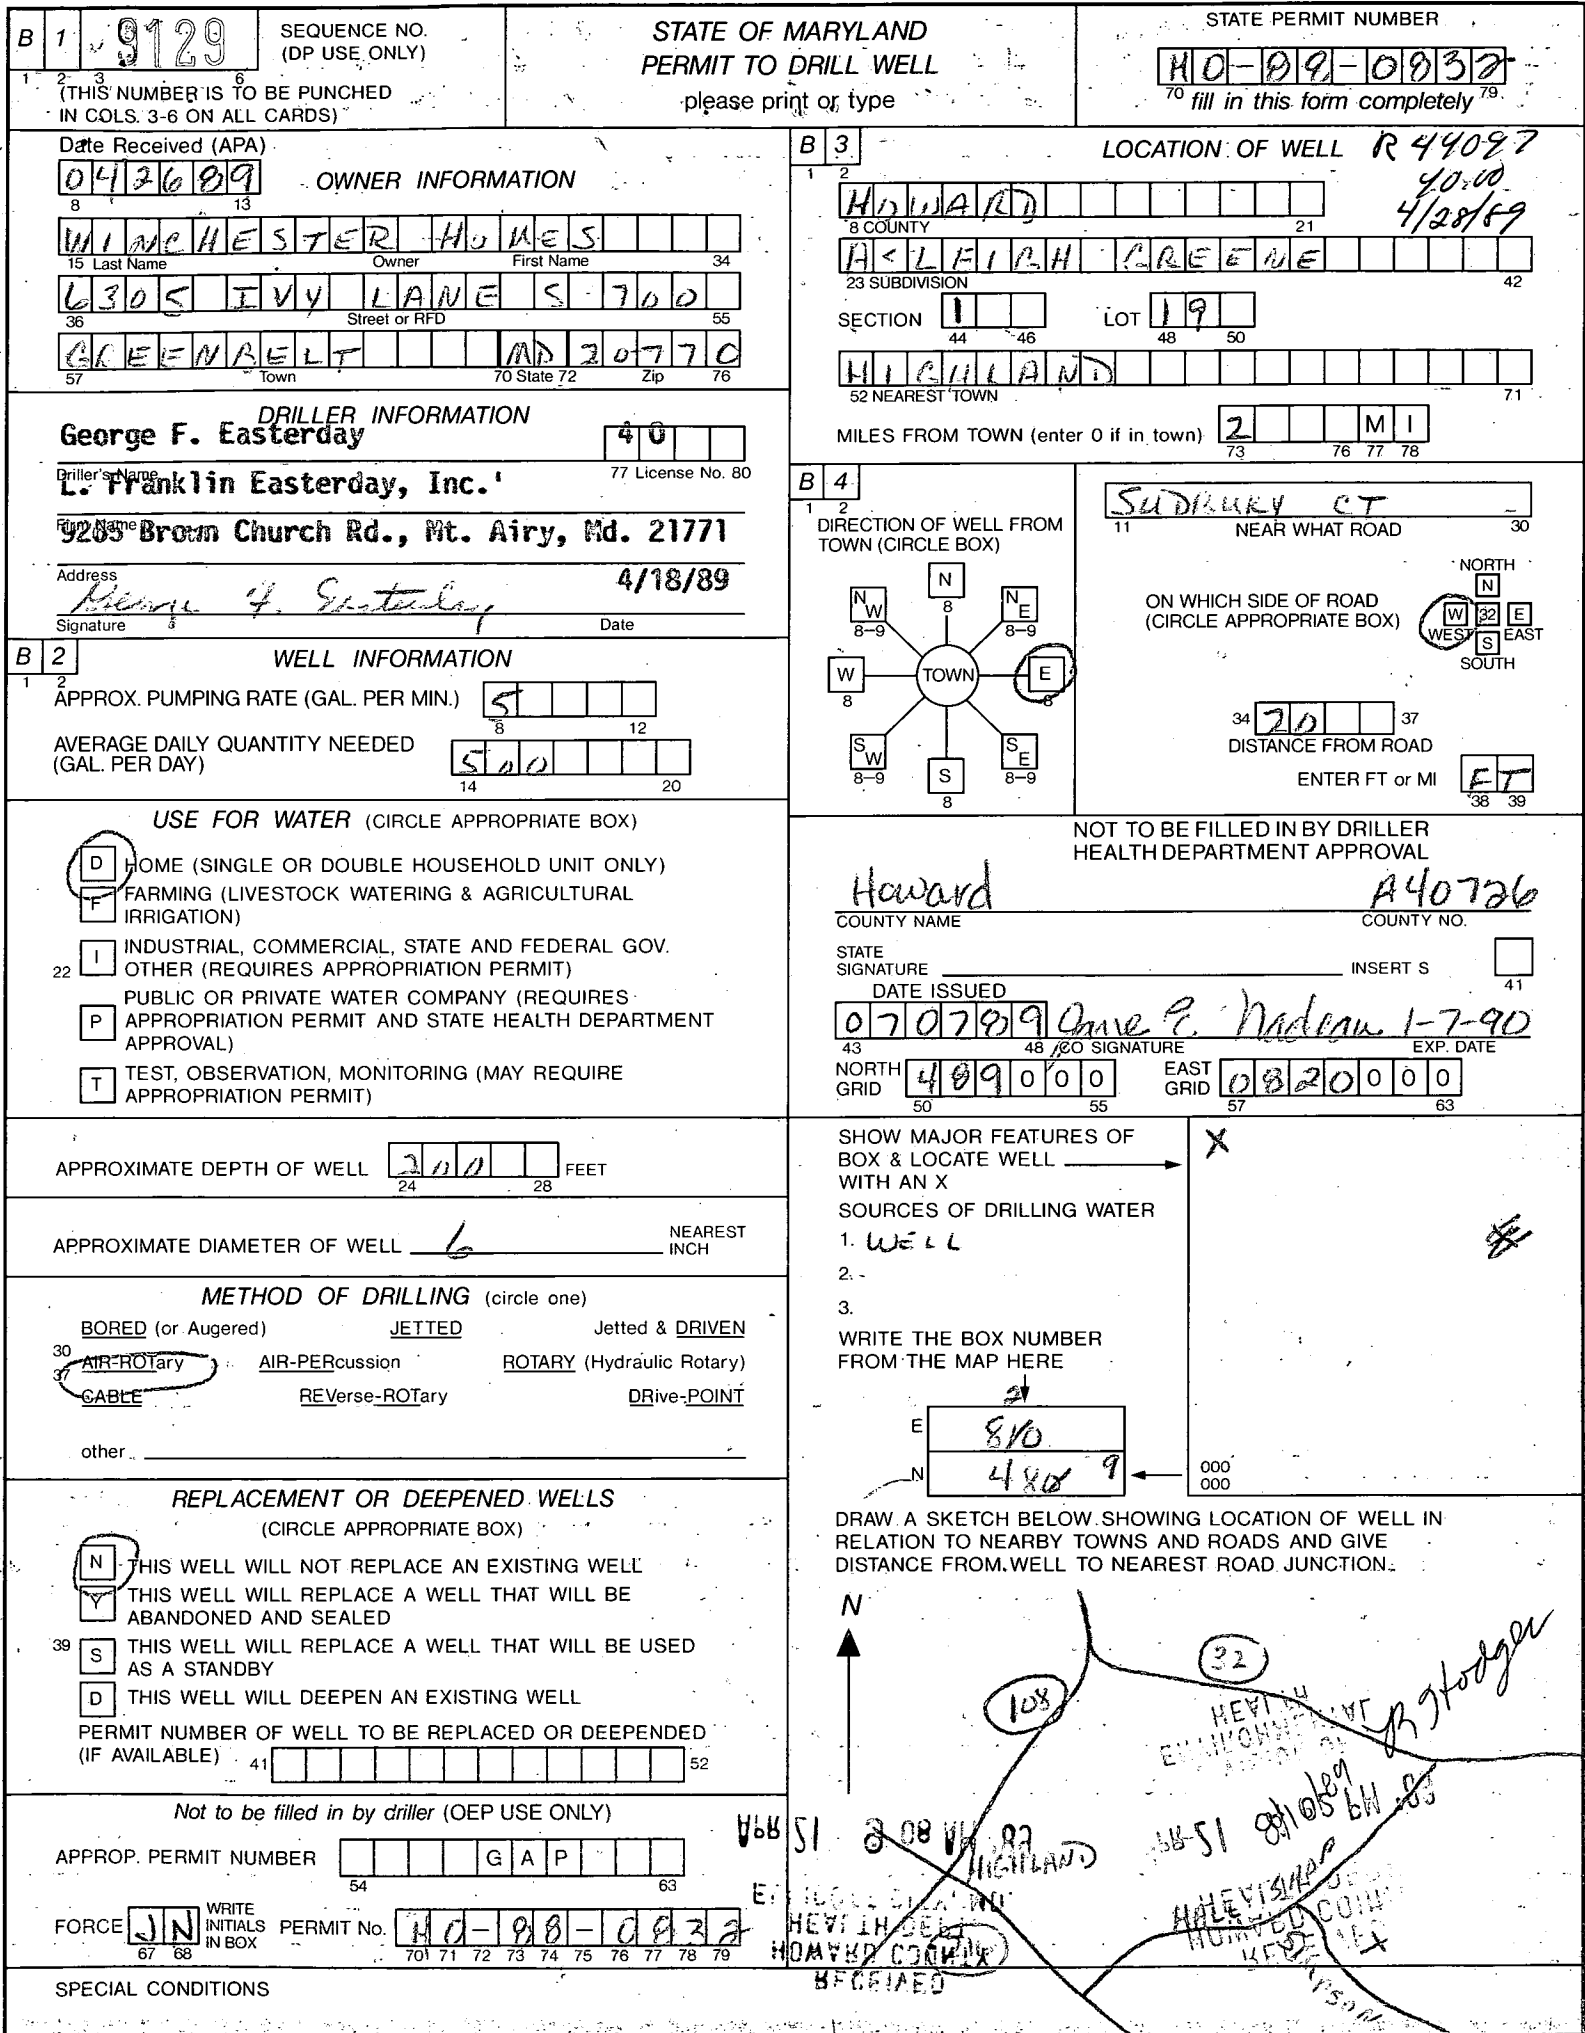 B 1 9129 SEQUENCE NO. (DP USE ONLY)
1 2 3 6
(THIS NUMBER IS TO BE PUNCHED
IN COLS. 3-6 ON ALL CARDS)
STATE OF MARYLAND
PERMIT TO DRILL WELL
please print or type
STATE PERMIT NUMBER
HO-88-0832
70 fill in this form completely 79
Date Received (APA)
042689
8 13
OWNER INFORMATION
WINCHESTER HOMES
15 Last Name Owner First Name 34
6305 IVY LANE S 700
36 Street or RFD 55
GREENBELT MD 20770
57 Town 70 State 72 Zip 76
DRILLER INFORMATION
George F. Easterday 40
Driller's Name 77 License No. 80
L. Franklin Easterday, Inc.
Firm Name
9285 Brown Church Rd., Mt. Airy, Md. 21771
Address
George F. Easterday 4/18/89
Signature Date
B 2 WELL INFORMATION
1 2
APPROX. PUMPING RATE (GAL. PER MIN.) 5
8 12
AVERAGE DAILY QUANTITY NEEDED
(GAL. PER DAY) 500
14 20
USE FOR WATER (CIRCLE APPROPRIATE BOX)
D HOME (SINGLE OR DOUBLE HOUSEHOLD UNIT ONLY)
F FARMING (LIVESTOCK WATERING & AGRICULTURAL
IRRIGATION)
22 I INDUSTRIAL, COMMERCIAL, STATE AND FEDERAL GOV.
OTHER (REQUIRES APPROPRIATION PERMIT)
P PUBLIC OR PRIVATE WATER COMPANY (REQUIRES
APPROPRIATION PERMIT AND STATE HEALTH DEPARTMENT
APPROVAL)
T TEST, OBSERVATION, MONITORING (MAY REQUIRE
APPROPRIATION PERMIT)
APPROXIMATE DEPTH OF WELL 200 FEET
24 28
APPROXIMATE DIAMETER OF WELL 6 NEAREST
INCH
METHOD OF DRILLING (circle one)
BORED (or Augered) JETTED Jetted & DRIVEN
30 AIR-ROTary AIR-PERcussion ROTARY (Hydraulic Rotary)
37 CABLE REVerse-ROTary DRive-POINT
other
REPLACEMENT OR DEEPENED WELLS
(CIRCLE APPROPRIATE BOX)
N THIS WELL WILL NOT REPLACE AN EXISTING WELL
Y THIS WELL WILL REPLACE A WELL THAT WILL BE
ABANDONED AND SEALED
39 S THIS WELL WILL REPLACE A WELL THAT WILL BE USED
AS A STANDBY
D THIS WELL WILL DEEPEN AN EXISTING WELL
PERMIT NUMBER OF WELL TO BE REPLACED OR DEEPENDED
(IF AVAILABLE) 41 52
Not to be filled in by driller (OEP USE ONLY)
APPROP. PERMIT NUMBER G A P
54 63
FORCE JN WRITE INITIALS IN BOX PERMIT No. HO-88-0832
67 68 70 71 72 73 74 75 76 77 78 79
SPECIAL CONDITIONS
B 3 LOCATION OF WELL R 44097
1 2 40.00
HOWARD 4/28/89
8 COUNTY 21
ASLEIGH GREENE
23 SUBDIVISION 42
SECTION 1 LOT 19
44 46 48 50
HIGHLAND
52 NEAREST TOWN 71
MILES FROM TOWN (enter 0 if in town) 2 M I
73 76 77 78
B 4
1 2
DIRECTION OF WELL FROM
TOWN (CIRCLE BOX)
N
8
NW NE
8-9 8-9
W TOWN E
8 8
SW SE
8-9 8-9
S
8
SUDBURY CT
11 NEAR WHAT ROAD 30
ON WHICH SIDE OF ROAD
(CIRCLE APPROPRIATE BOX)
NORTH
N
W 32 E
WEST EAST
S
SOUTH
34 20 37
DISTANCE FROM ROAD
ENTER FT or MI FT
38 39
NOT TO BE FILLED IN BY DRILLER
HEALTH DEPARTMENT APPROVAL
Howard A40726
COUNTY NAME COUNTY NO.
STATE
SIGNATURE INSERT S
41
DATE ISSUED
070789 Nadeau 1-7-90
43 48 CO SIGNATURE EXP. DATE
NORTH GRID 489000 EAST GRID 0820000
50 55 57 63
SHOW MAJOR FEATURES OF
BOX & LOCATE WELL
WITH AN X
X
SOURCES OF DRILLING WATER
1. WELL
2.
3.
WRITE THE BOX NUMBER
FROM THE MAP HERE
2
E 810
N 480 9
000
000
DRAW A SKETCH BELOW SHOWING LOCATION OF WELL IN
RELATION TO NEARBY TOWNS AND ROADS AND GIVE
DISTANCE FROM WELL TO NEAREST ROAD JUNCTION.
N
32
108
R Hodges
HIGHLAND
HEALTH DEPT
HOWARD COUNTY
RECEIVED